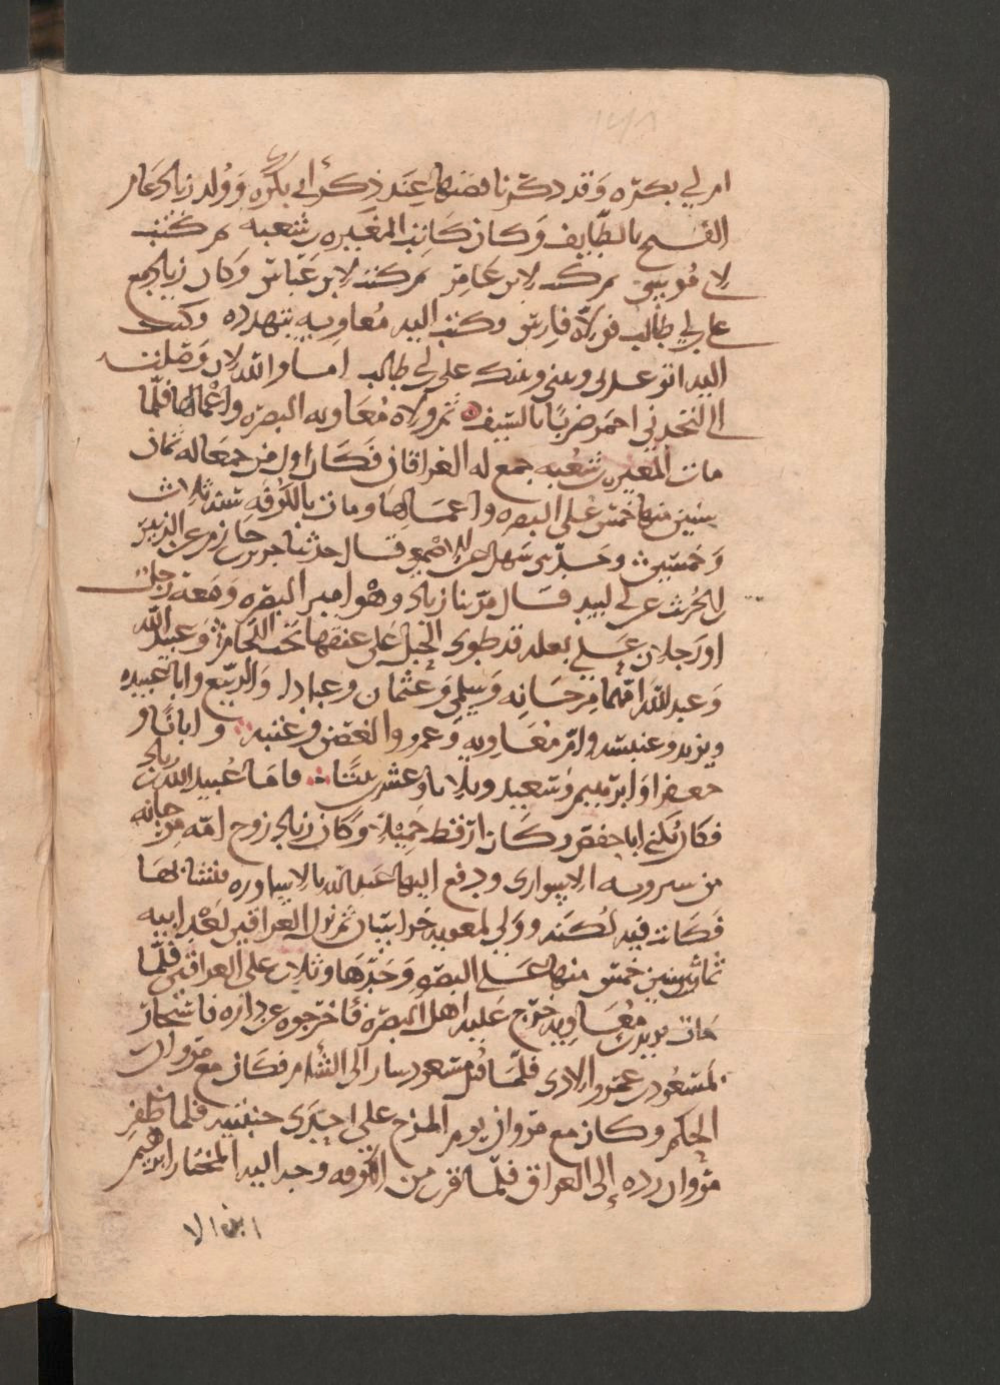 ام ابي بكرة وقد ذكرنا قصتها عند ذكر ابي بكرة وولد زياد عام
الفتح بالطايف وكان كاتب المغيره بن شعبه ثم كتب
لابي موسى ثم كتب لابن عامر ثم كتب لابن عباس وكان زياد مع
علي بن ابي طالب فولاه فارس وكتب اليه معاويه يتهدده وكتب
اليه اتوعدني وبيني وبينك علي بن ابي طالب اما والله لان وصلت
الي لتجدني احمر ضرابا بالسيف ثم ولاه معاويه البصره واعمالها فلما
مات المغيره بن شعبه جمع له العراقان فكان اول من جمعا له ثمان
سنين منها خمس على البصره واعمالها ومات بالكوفه سنه ثلاث
وخمسين وحدثني سهل عن الاصمعي قال حدثنا جرير بن حازم عن الزبير
بن الحرث عن ابي لبيد قال مر بنا زياد وهو امير البصره ومعه رجل
او رجلان على بغله قد طوى الحبل على عنقها تحت اللجام وعبيد الله
وعبد الله امهما مرجانه وسلمى وعثمان وعبادا والربيع وابا عبيده
ويزيد وعنبسه وام معاويه وعمر والغصن وعتبه وابانا و
جعفرا وابرهيم وسعيد وثلاثا وعشرين بنتا فاما عبيد الله بن زياد
فكان يكنى ابا حفص وكان ارقط جميلا وكان زياد زوج امه مرجانه
من سيرويه الاسواري ودفع اليها عبيد الله بالاساوره فنشا بها
فكانت فيه لكنه وولي لمعويه خراسان ثم ولي العراقين بعد ابيه
ثمان سنين خمس منها على البصره وحدها وثلاث على العراقين فلما
مات يزيد بن معاويه خرج عليه اهل البصره فاخرجوه عن داره فاستجار
بمسعود بن عمرو الازدي فلما قتل مسعود سار الى الشام فكان مع مروان بن
الحكم وكان مع مروان يوم المرج على احدى جنبتيه فلما ظفر
مروان رده إلى العراق فلما قرب من الكوفه وجه اليه المختار ابرهيم
ابن الا